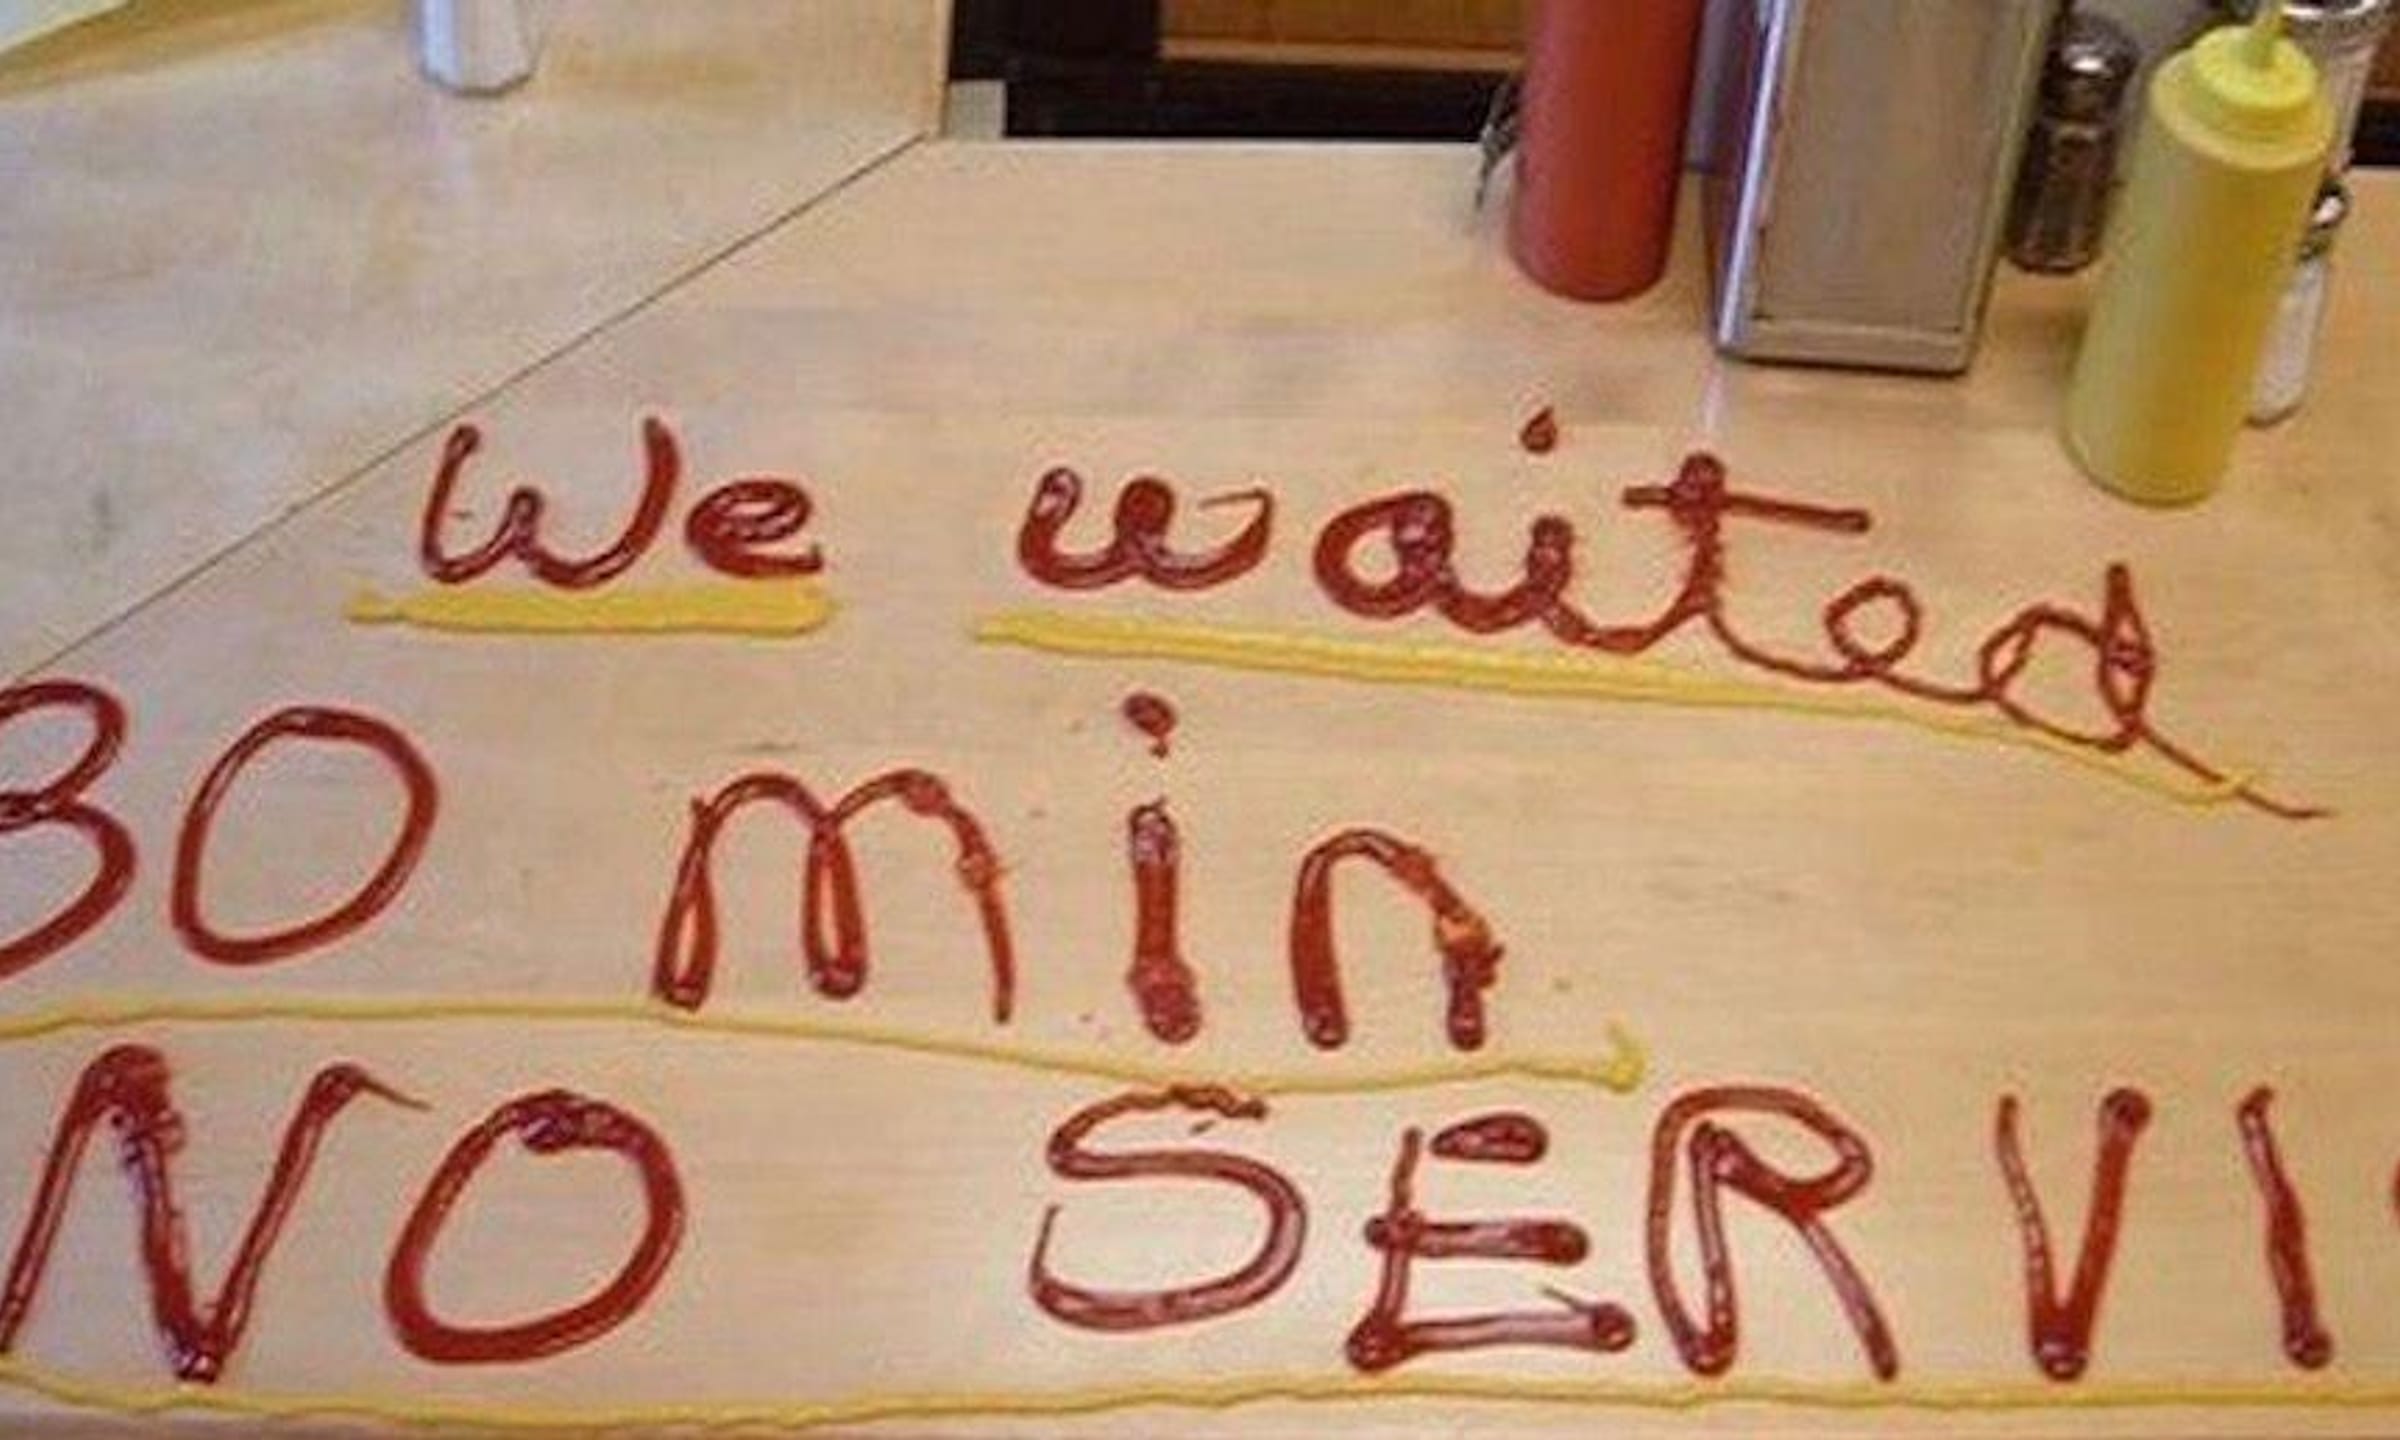 We waited
30 min
NO SERVI